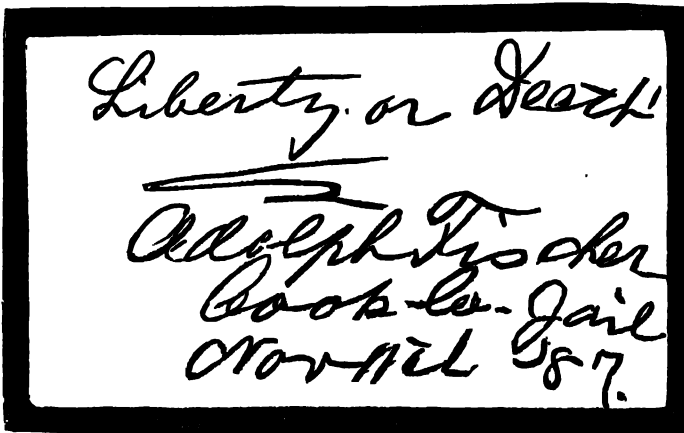 Liberty or Death!
Adolph Fischer
Cook-Co-Jail
Nov 11th '87.